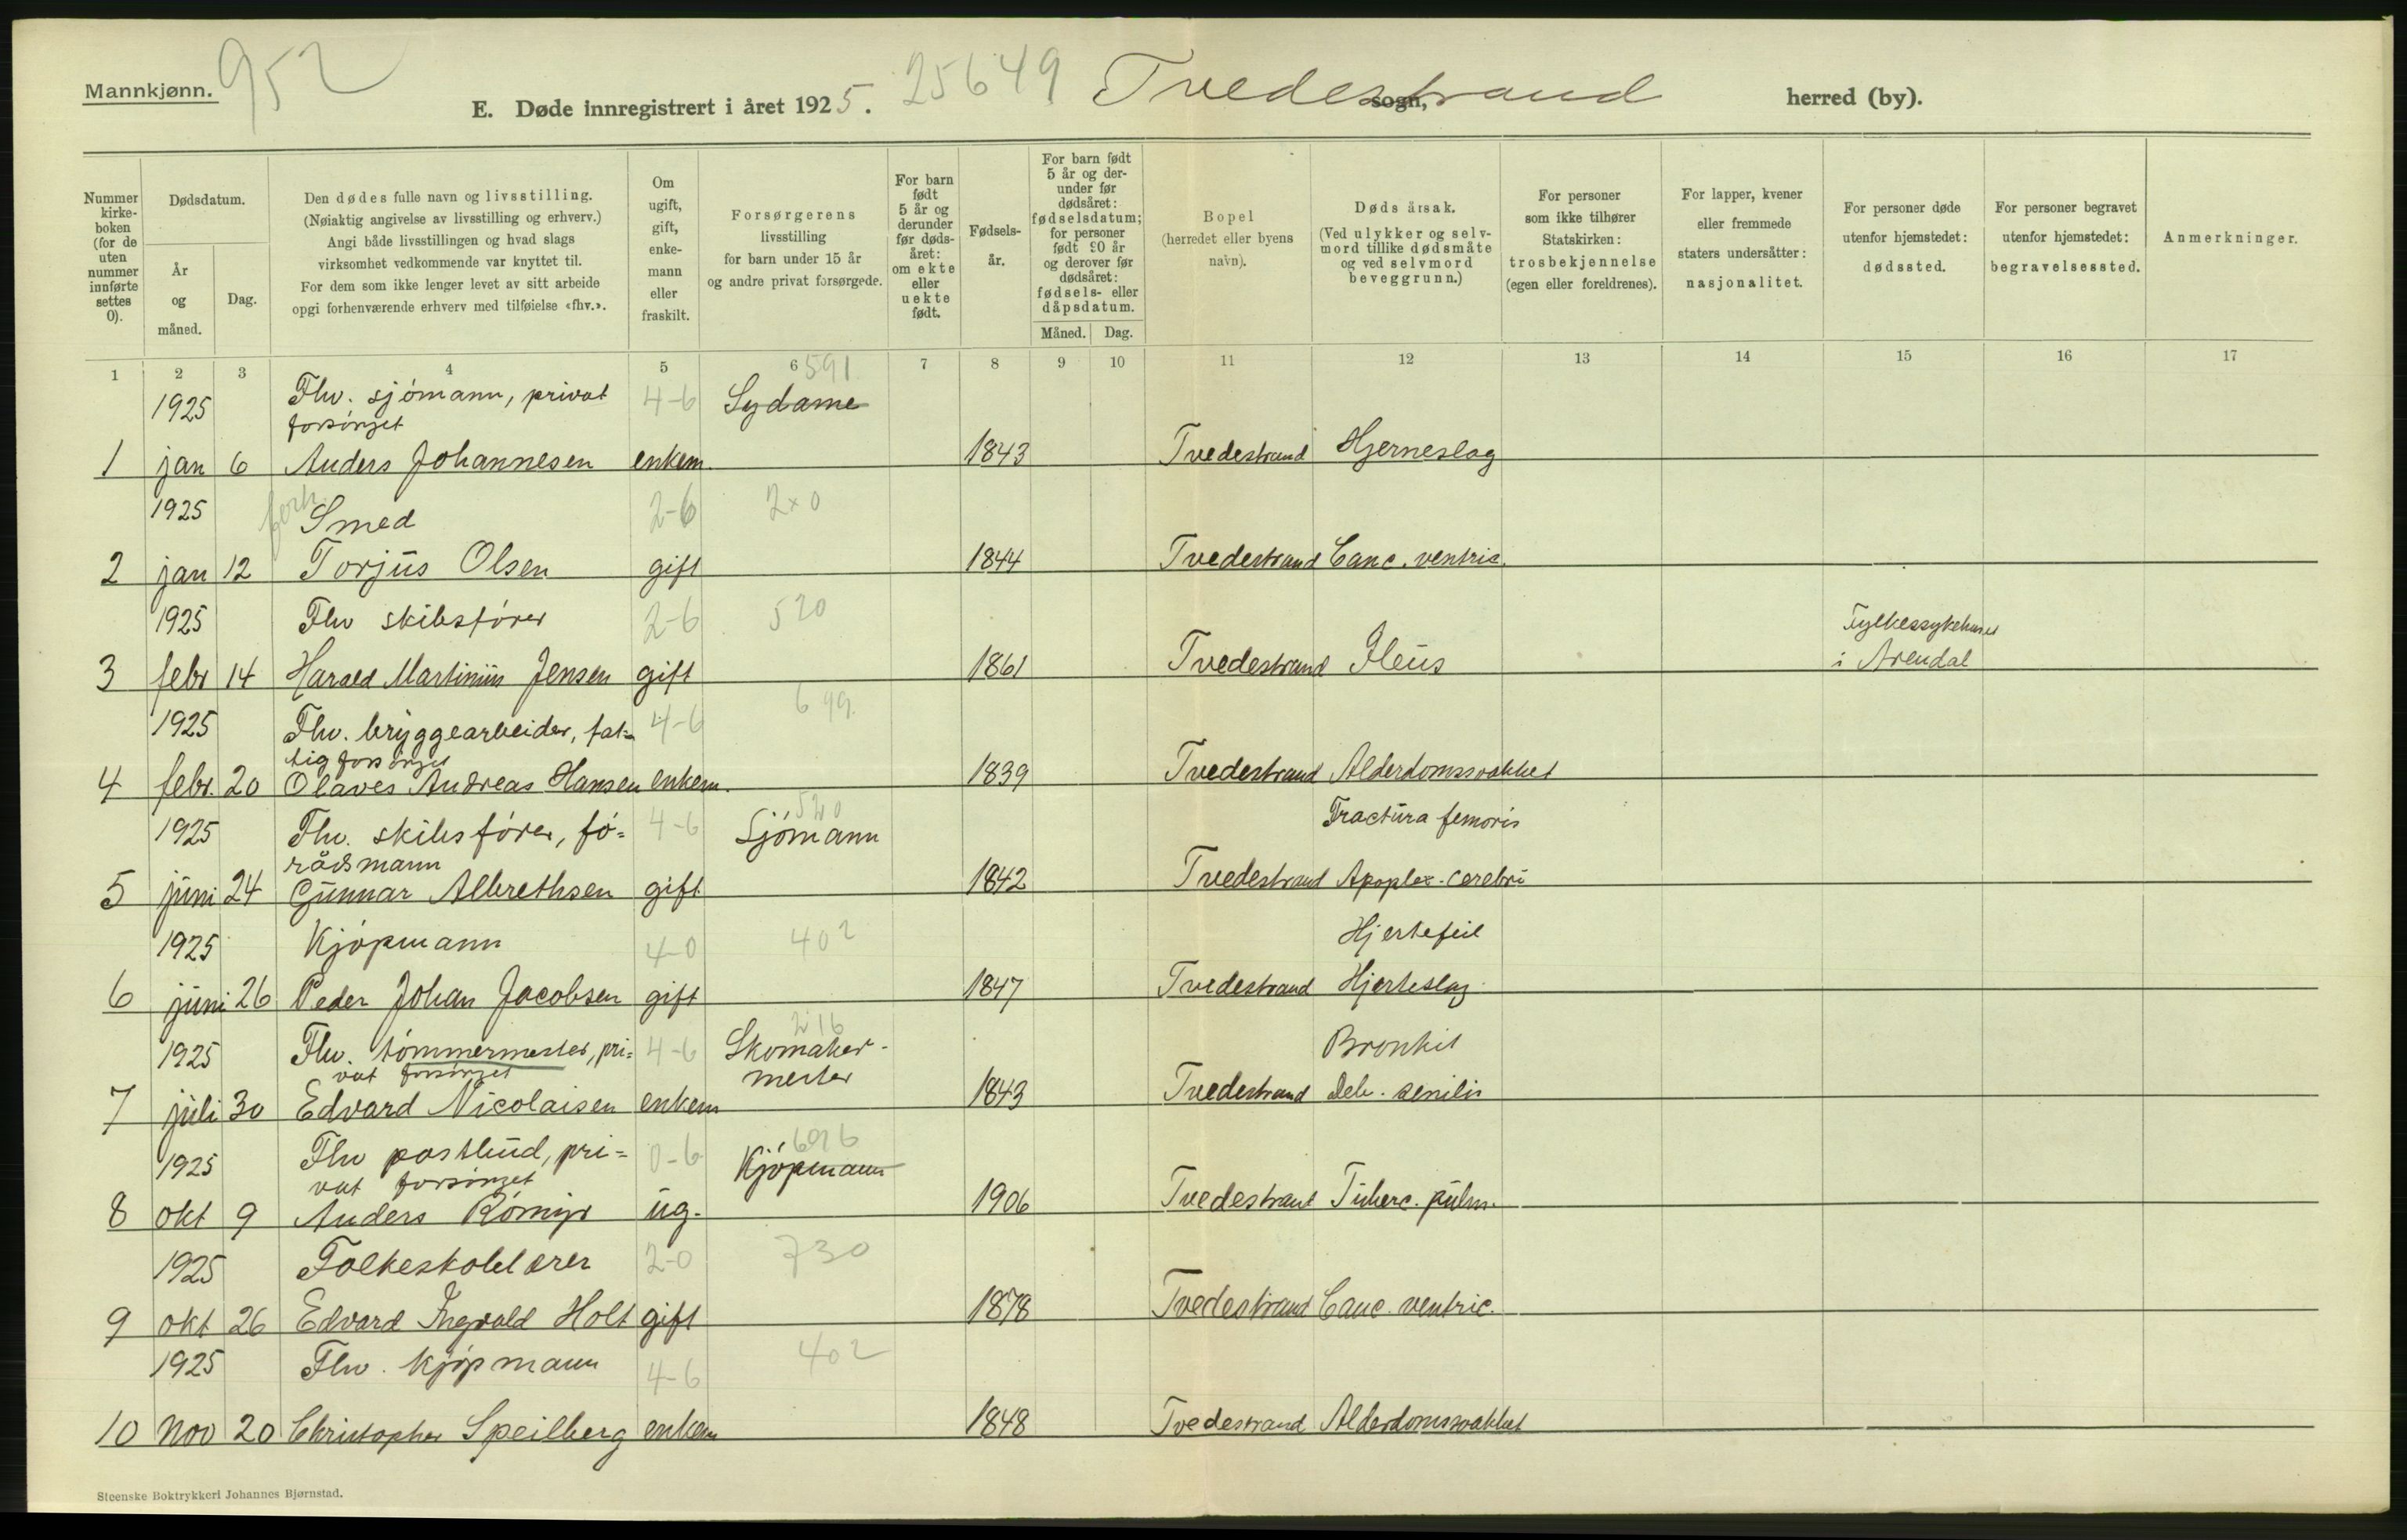 Mannkjønn. 952
E. Døde innregistrert i året 1925. 25649 Tvedestrand sogn, herred (by).
Nummer kirkeboken (for de uten nummer innførte settes 0).
Dødsdatum.
År og måned.
Dag.
Den dødes fulle navn og livsstilling.
(Nøiaktig angivelse av livsstilling og erhverv.)
Angi både livsstillingen og hvad slags
virksomhet vedkommende var knyttet til.
For dem som ikke lenger levet av sitt arbeide
opgi forhenværende erhverv med tilføielse «fhv.».
Om ugift, gift, enkemann eller fraskilt.
Forsørgerens
livsstilling
for barn under 15 år
og andre privat forsørgede.
For barn født 5 år og derunder før dødsåret: om ekte eller uekte født.
Fødselsår.
For barn født 5 år og derunder før dødsåret: fødselsdatum; for personer født 90 år og derover før dødsåret: fødsels- eller dåpsdatum.
Måned. Dag.
Bopel
(herredet eller byens
navn).
Dødsårsak.
(Ved ulykker og selvmord tillike dødsmåte
og ved selvmord
beveggrunn.)
For personer
som ikke tilhører
Statskirken:
trosbekjennelse
(egen eller foreldrenes).
For lapper, kvener
eller fremmede
staters undersåtter:
nasjonalitet.
For personer døde
utenfor hjemstedet:
dødssted.
For personer begravet
utenfor hjemstedet:
begravelsessted.
Anmerkninger.
1 2 3 4 5 6 7 8 9 10 11 12 13 14 15 16 17
591
1925 Fhv. sjømann, privat 4-6 Sydame
forsørget
1 jan 6 Anders Johannesen enkem. 1843 Tvedestrand Hjerneslag
1925 forh. Smed 2-6 2x0
2 jan 12 Torjus Olsen gift 1844 Tvedestrand Canc. ventric.
1925 Fhv skibsfører 2-6 520 Fylkessykehuset
3 febr 14 Harald Martinius Jensen gift 1861 Tvedestrand Ileus i Arendal
1925 Fhv. bryggearbeider, fat- 4-6 699
tigforsørget
4 febr. 20 Olaves Andreas Hansen enkem. 1839 Tvedestrand Alderdomssvakhet
1925 Fhv. skibsfører, fø- 4-6 520 Sjømann Fractura femoris
rådsmann
5 juni 24 Gunnar Albrethsen gift 1842 Tvedestrand Apoplex. cerebri
1925 Kjøpmann 4-0 402 Hjertefeil
6 juni 26 Peder Johan Jacobsen gift 1847 Tvedestrand Hjerteslag
216
1925 Fhv. tømmermester, pri- 4-6 Skomaker- Bronkit
vat forsørget mester
7 juli 30 Edvard Nicolaisen enkem 1843 Tvedestrand Deb. senilis
696
1925 Fhv postbud, pri- 0-6 Kjøpmann
vat forsørget
8 okt 9 Anders Rømyr ug. 1906 Tvedestrand Tuberc. pulm.
1925 Folkeskolelærer 2-0 730
9 okt 26 Edvard Ingvald Holt gift 1878 Tvedestrand Canc. ventric.
1925 Fhv. kjøpmann 4-6 402
10 nov 20 Christopher Speilberg enkem 1848 Tvedestrand Alderdomssvakhet
Steenske Boktrykkeri Johannes Bjørnstad.